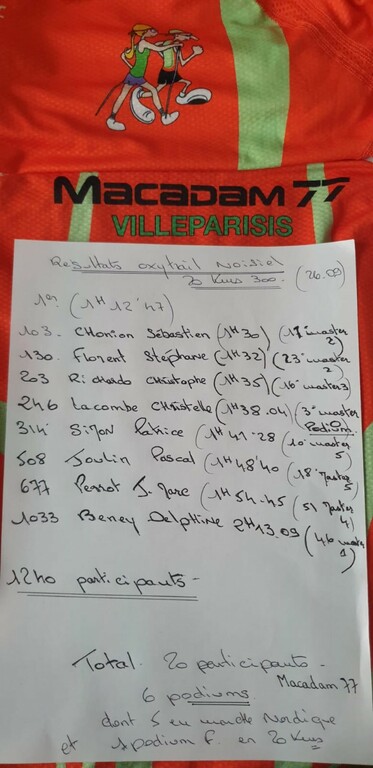 MACADAM 77
VILLEPARISIS
Résultats oxytrail Noisiel (26.09)
20 Kms 300.
1er (1H12'47)
103 - CHONION Sébastien (1H30) (17° master 2)
130. Florent Stéphane (1H32) (23° master 2)
203 Richardo Christophe (1H35) (16° master 3)
246 Lacombe CHristelle (1H38.04) (3° master Podium)
314 Simon Patrice (1H41-28 (10° master 5)
508 Joulin Pascal (1H48'40 (18° Master 5)
677 Perrot J. Marc (1H54-45 (51 Master 4)
1033 Beney Delphine 2H13.09 (46 master 1)
1240 participants -
Total. 20 participants -
Macadam 77
6 podiums.
dont 5 en marche Nordique
et 1 podium F. en 20 Kms